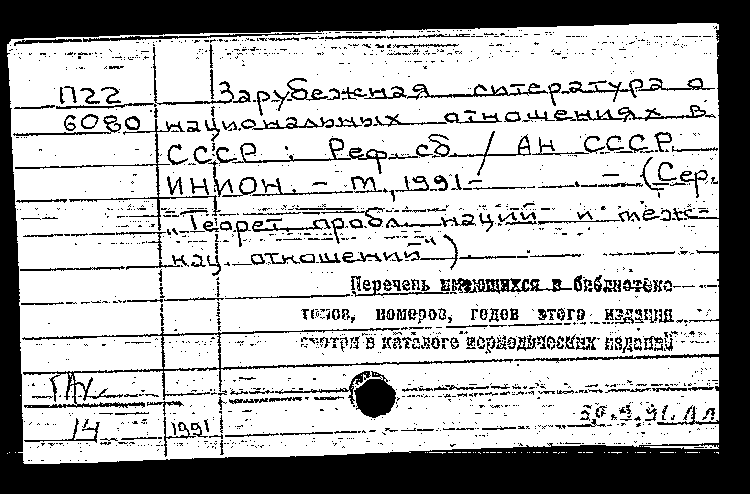 П22 Зарубежная литература о
6080 национальных отношениях в
СССР : Реф. сб. / АН СССР.
ИНИОН. – М., 1991– . – (Сер.
„Теорет. пробл. наций и меж-
нац. отношений").
Перечень имеющихся в библиотеке
томов, номеров, годов этого издания
смотри в каталоге периодических изданий
14 1991